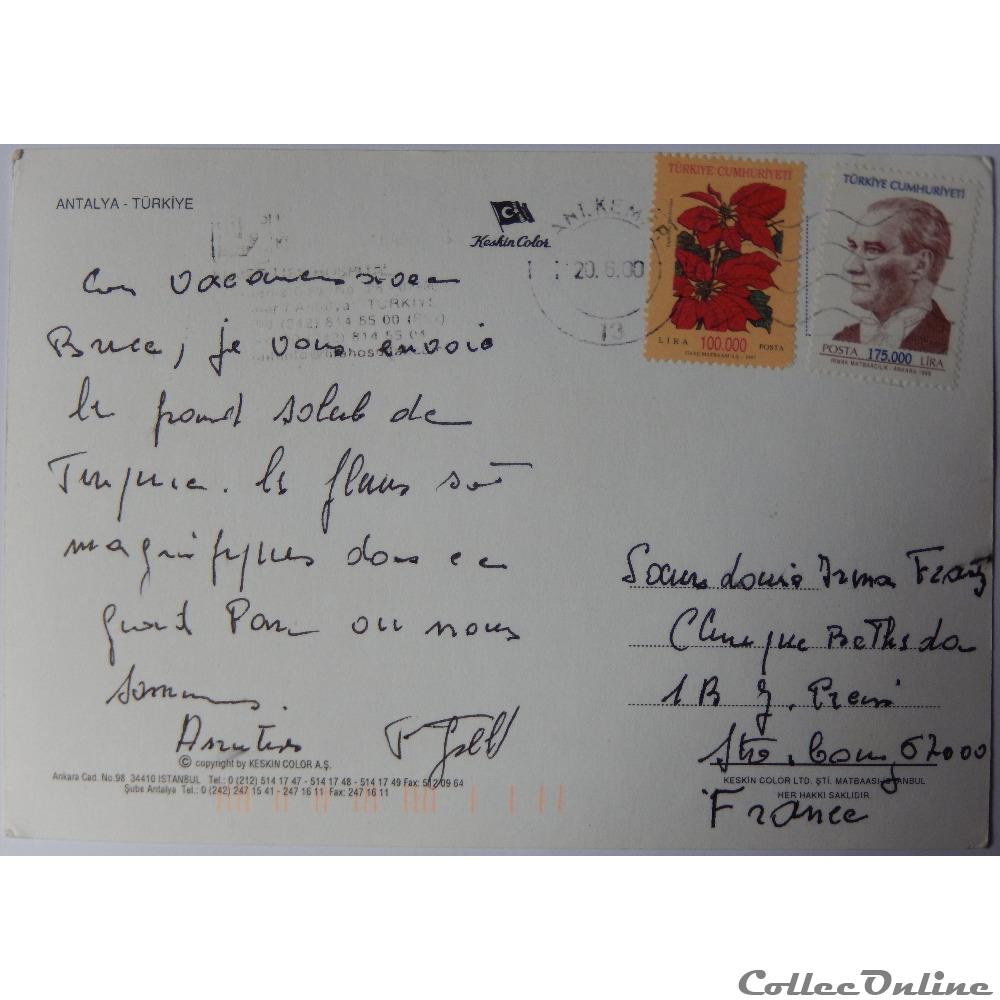 ANTALYA - TÜRKİYE
Keskin Color
ANT. KEM
20.6.00
13
TÜRKİYE CUMHURİYETİ
LİRA 100.000 POSTA
TÜRKİYE CUMHURİYETİ
POSTA 175.000 LİRA
TÜRKİYE
(242) 814 55 00
En vacances avec
Bruce, je vous envoie
le grand soleil de
Turquie. les fleurs sont
magnifiques dans ce
grand Parc ou nous
sommes.
Soeur Louise Irma Frantz
Clinique Bethesda
1 B
Strasbourg 67000
France
© copyright by KESKIN COLOR A.Ş.
Ankara Cad. No.98 34410 ISTANBUL Tel.: 0 (212) 514 17 47 - 514 17 48 - 514 17 49 Fax: 512 09 64
Şube Antalya Tel.: 0 (242) 247 15 41 - 247 16 11 Fax: 247 16 11
KESKİN COLOR LTD. ŞTİ. MATBAASI-İSTANBUL
HER HAKKI SAKLIDIR
CollecOnline